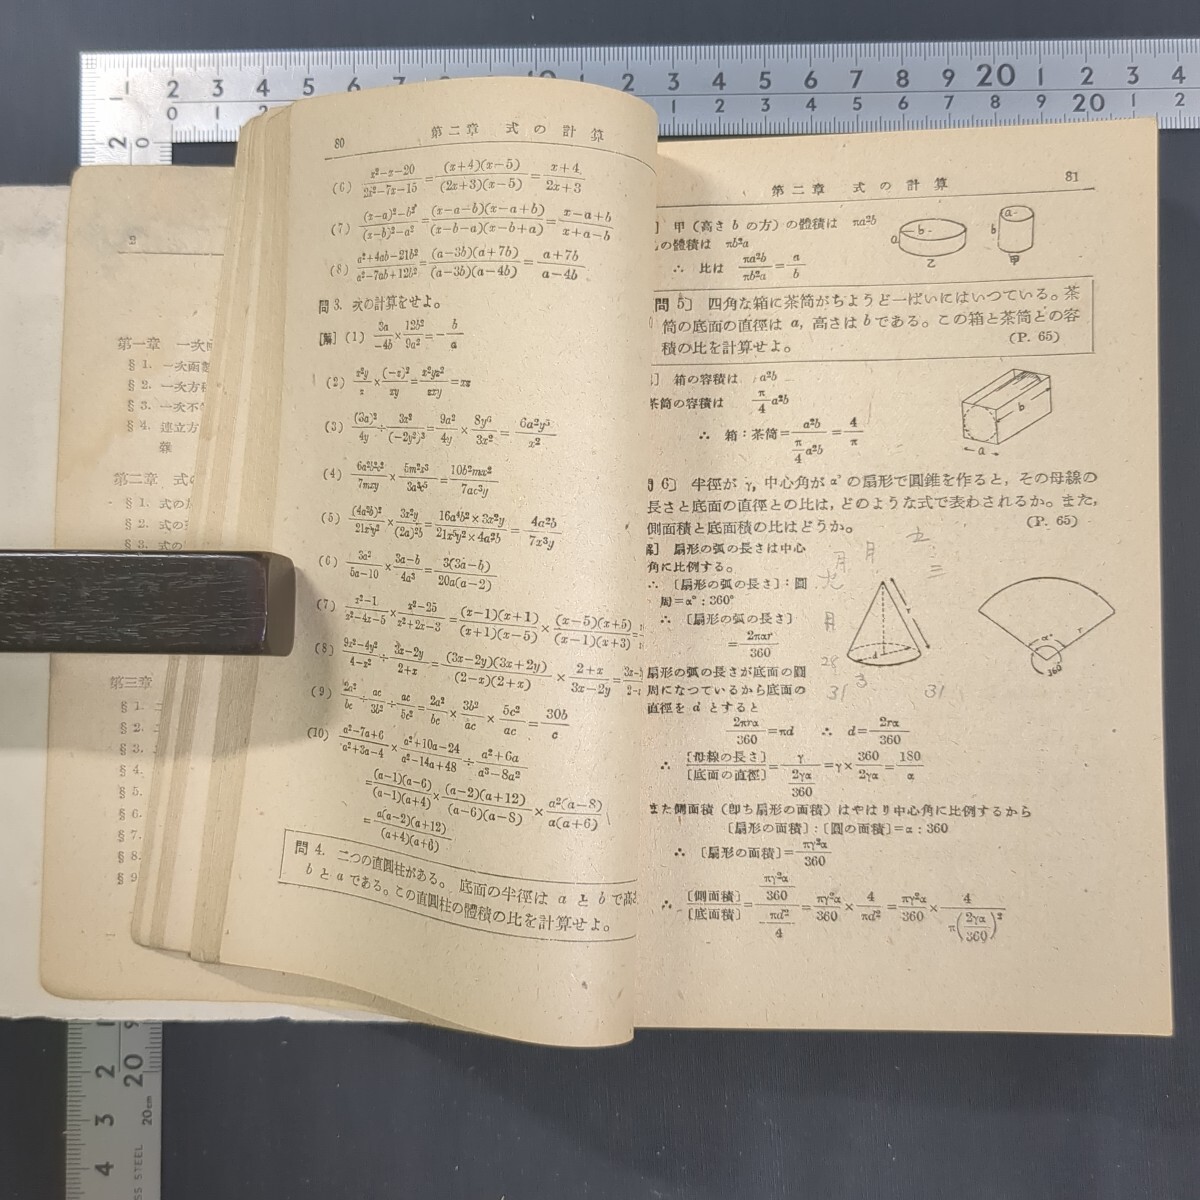 80 第二章 式の計算
(6) x²-x-20/2x²-7x-15=(x+4)(x-5)/(2x+3)(x-5)=x+4/2x+3
(7) (x-a)²-b²/(x-b)²-a²=(x-a-b)(x-a+b)/(x-b-a)(x-b+a)=x-a+b/x+a-b
(8) a²+4ab-21b²/a²-7ab+12b²=(a-3b)(a+7b)/(a-3b)(a-4b)=a+7b/a-4b
問3. 次の計算をせよ。
[解] (1) 3a/-4b×12b²/9a²=-b/a
(2) x²y/z×(-z)²/xy=x²yz²/zxy=xz
(3) (3a)²/4y÷3x²/(-2y²)³=9a²/4y×8y⁶/3x²=6a²y⁵/x²
(4) 6a²b²c²/7mxy×5m²x³/3a³c⁵=10b²mx²/7ac³y
(5) (4a²b)²/21x⁵y²×3x²y/(2a)²b=16a⁴b²×3x²y/21x⁵y²×4a²b=4a²b/7x³y
(6) 3a²/5a-10×3a-b/4a³=3(3a-b)/20a(a-2)
(7) x²-1/x²-4x-5×x²-25/x²+2x-3=(x-1)(x+1)/(x+1)(x-5)×(x-5)(x+5)/(x-1)(x+3)=
(8) 9x²-4y²/4-x²÷3x-2y/2+x=(3x-2y)(3x+2y)/(2-x)(2+x)×2+x/3x-2y=
(9) 2a²/bc÷ac/3b²÷ac/5c²=2a²/bc×3b²/ac×5c²/ac=30b/c
(10) a²-7a+6/a²+3a-4×a²+10a-24/a²-14a+48÷a²+6a/a³-8a²
=(a-1)(a-6)/(a-1)(a+4)×(a-2)(a+12)/(a-6)(a-8)×a²(a-8)/a(a+6)
=a(a-2)(a+12)/(a+4)(a+6)
問4. 二つの直圓柱がある。底面の半徑は a と b で高さ
b と a である。この直圓柱の體積の比を計算せよ。
第二章 式の計算 81
甲(高さ b の方)の體積は πa²b
の體積は πb²a
∴ 比は πa²b/πb²a=a/b
a b 乙
a b 甲
問5] 四角な箱に茶筒がちようど一ぱいにはいつている。茶
筒の底面の直徑は a, 高さは b である。この箱と茶筒との容
積の比を計算せよ。 (P. 65)
箱の容積は a²b
茶筒の容積は π/4 a²b
∴ 箱:茶筒=a²b/π/4 a²b=4/π
b
a
6] 半徑が γ, 中心角が α° の扇形で圓錐を作ると, その母線の
長さと底面の直徑との比は, どのような式で表わされるか。また,
側面積と底面積の比はどうか。 (P. 65)
扇形の弧の長さは中心
角に比例する。
∴ [扇形の弧の長さ]:圓
周=α°:360°
∴ [扇形の弧の長さ]
=2παr/360
扇形の弧の長さが底面の圓
周になつているから底面の
直徑を d とすると
2πrα/360=πd ∴ d=2rα/360
r d
α° r 360
月 月
28
31 3 31
∴ [母線の長さ]/[底面の直徑]=γ/2γα/360=γ×360/2γα=180/α
また側面積(即ち扇形の面積)はやはり中心角に比例するから
[扇形の面積]:[圓の面積]=α:360
∴ [扇形の面積]=πγ²α/360
∴ [側面積]/[底面積]=πγ²α/360/πd²/4=πγ²α/360×4/πd²=πγ²α/360×4/π(2γα/360)²
2
第一章 一次函
§1. 一次函数
§2. 一次方程
§3. 一次不
§4. 連立方
雜
第二章 式の
§1. 式の
§2. 式の
§3. 式の
第三章
§1.
§2.
§3.
§4.
§5.
§6.
§7.
§8.
§9
1 2 3 4 5 6 7 8 9 10 1 2 3 4 5 6 7 8 9 20 1 2 3 4
0 1 2 3 4 5 6 7 8 9 20 1 2
20cm
SS STEEL